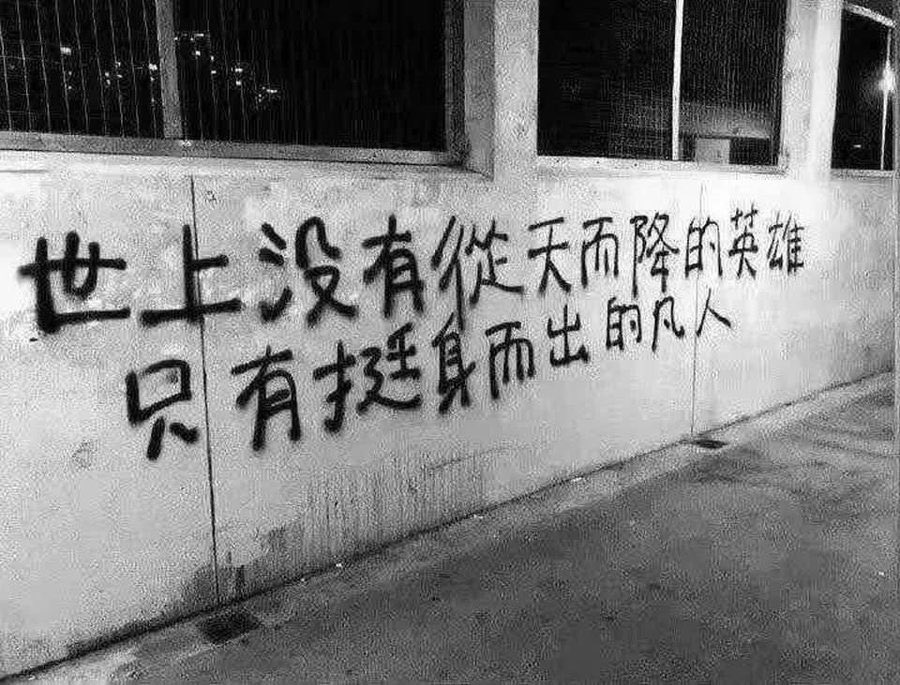 世上没有從天而降的英雄
只有挺身而出的凡人